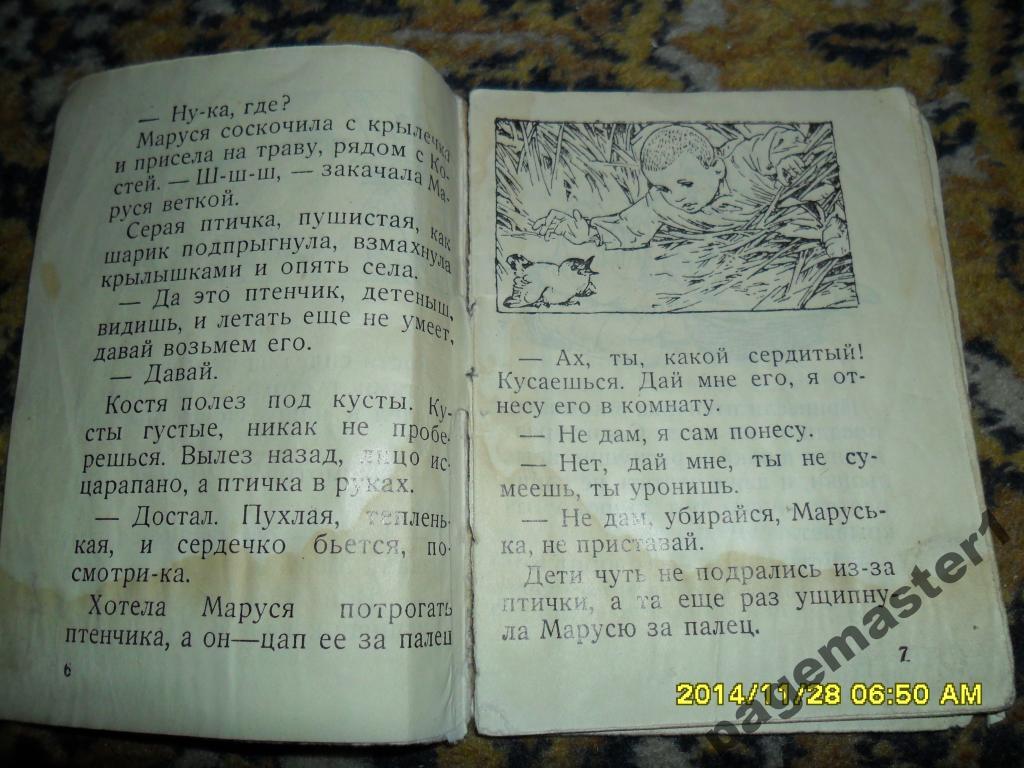 — Ну-ка, где?
Маруся соскочила с крылечка
и присела на траву, рядом с Ко-
стей. — Ш-ш-ш, — закачала Ма-
руся веткой.
Серая птичка, пушистая, как
шарик подпрыгнула, взмахнула
крылышками и опять села.
— Да это птенчик, детеныш,
видишь, и летать еще не умеет,
давай возьмем его.
— Давай.
Костя полез под кусты. Ку-
сты густые, никак не пробе-
решься. Вылез назад, лицо ис-
царапано, а птичка в руках.
— Достал. Пухлая, теплень-
кая, и сердечко бьется, по-
смотри-ка.
Хотела Маруся потрогать
птенчика, а он—цап ее за палец
6
— Ах, ты, какой сердитый!
Кусаешься. Дай мне его, я от-
несу его в комнату.
— Не дам, я сам понесу.
— Нет, дай мне, ты не су-
меешь, ты уронишь.
— Не дам, убирайся, Марусь-
ка, не приставай.
Дети чуть не подрались из-за
птички, а та еще раз ущипну-
ла Марусю за палец.
7
2014/11/28 06:50 AM
pagemaster1